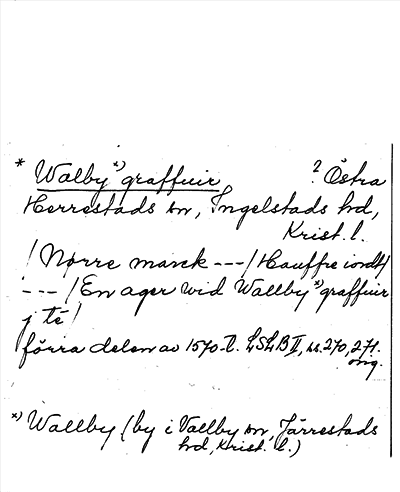 * Walby *) graffuir ? Östra
Herrestads sn, Ingelstads hd,
Krist. l.
/ Nørre marck --- / Hauffre iordt /
--- / En ager wid Wallby *) graffuir
j tē /
förra delen av 1570-t. LSLB II, ss. 270, 271.
orig.
*) Wallby (by i Vallby sn, Järrestads
hd, Krist. l.)